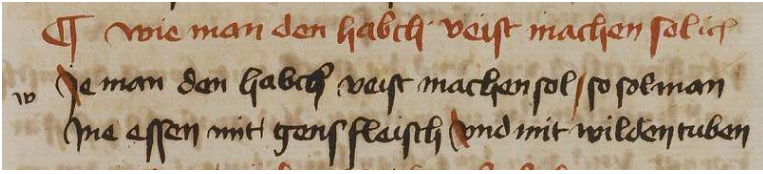 ¶ wie man den habch veist machen sol ich
w Je man den habch veist machen sol / so sol man
Jme essen mit gensfleisch vnd mit wilden tuben